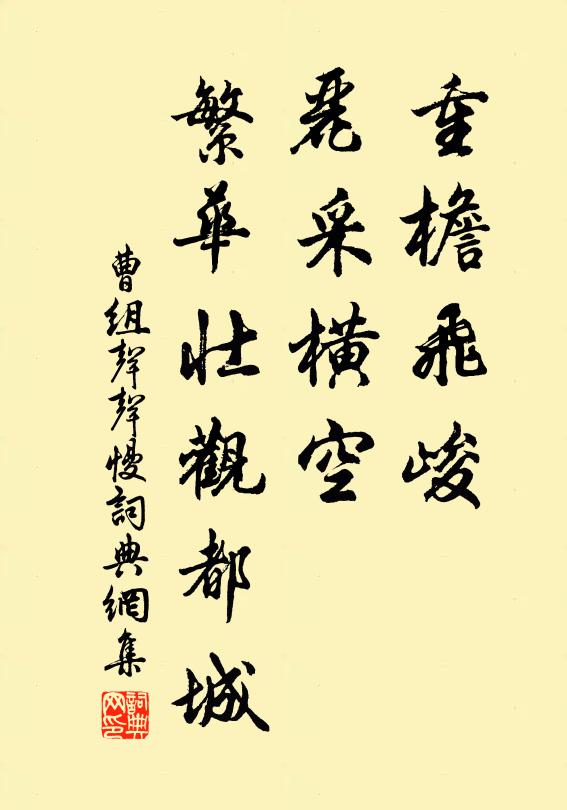 重檐飛峻
麗采橫空
繁華壯觀都城
曹組聲聲慢詞典網集
詞典
网印